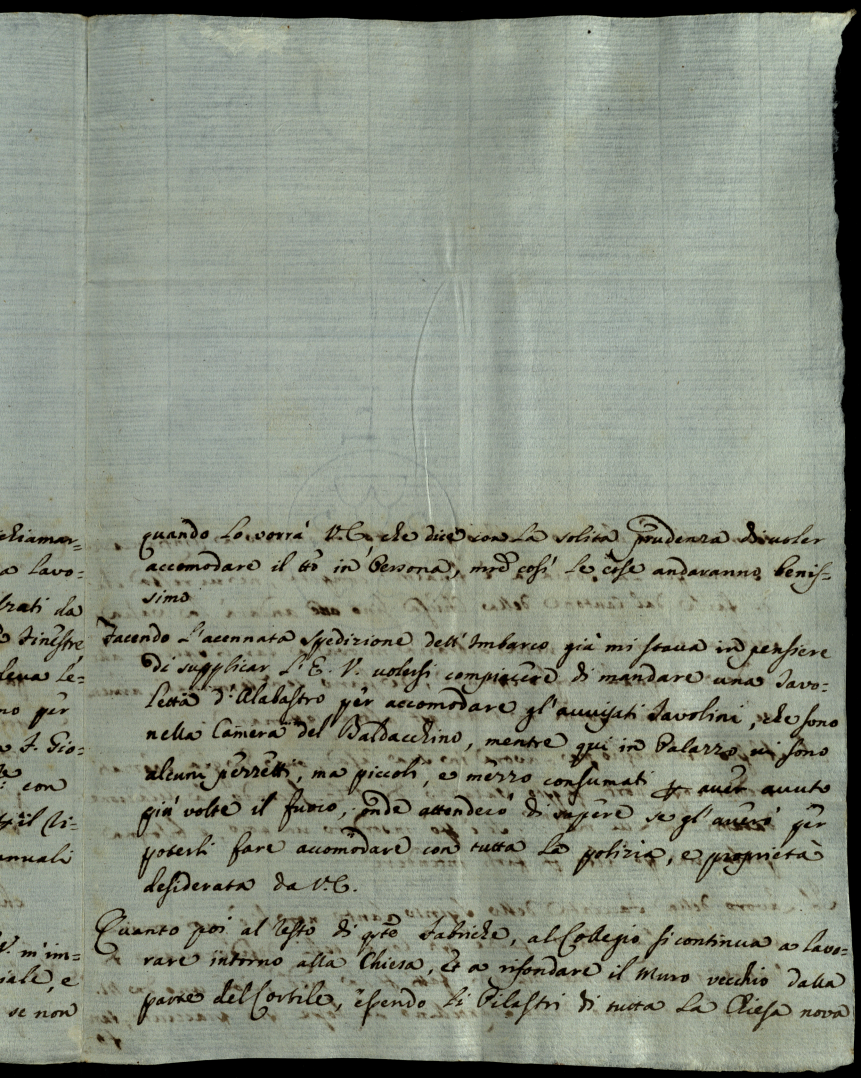 chiamar=
a lavo=
trati da
Finestre
leva le=
no per
a S. Gio=
con
il Vi=
annuali
V. m'im=
iale, e
se non
quando lo vorrà V.E. che dice con la solita prudenza di voler
accomodare il tto in Persona, mre così le cose andaranno benis=
simo
Facendo l'acennata spedizione dell'Imbarco già mi stava in pensiere
di supplicar L'E. V. volersi compiacere di mandare una Tavo=
letta d'Alabastro per accomodare gl'avvisati Tavolini, che sono
nella Camera del Baldacchino, mentre qui in Palazzo vi sono
alcuni pezzetti, ma piccoli, e mezzo consumati p aver avuto
più volte il fuoco, onde attenderò di sapere se gl'averò per
poterli fare accomodare con tutta la polizia, e proprietà
desiderata da V.E.
Quanto poi al resto di qste Fabriche, al Collegio si continua a lavo=
rare intorno alla Chiesa, et a rifondare il Muro vecchio dalla
parte del Cortile, essendo li Pilastri di tutta la Chiesa nova